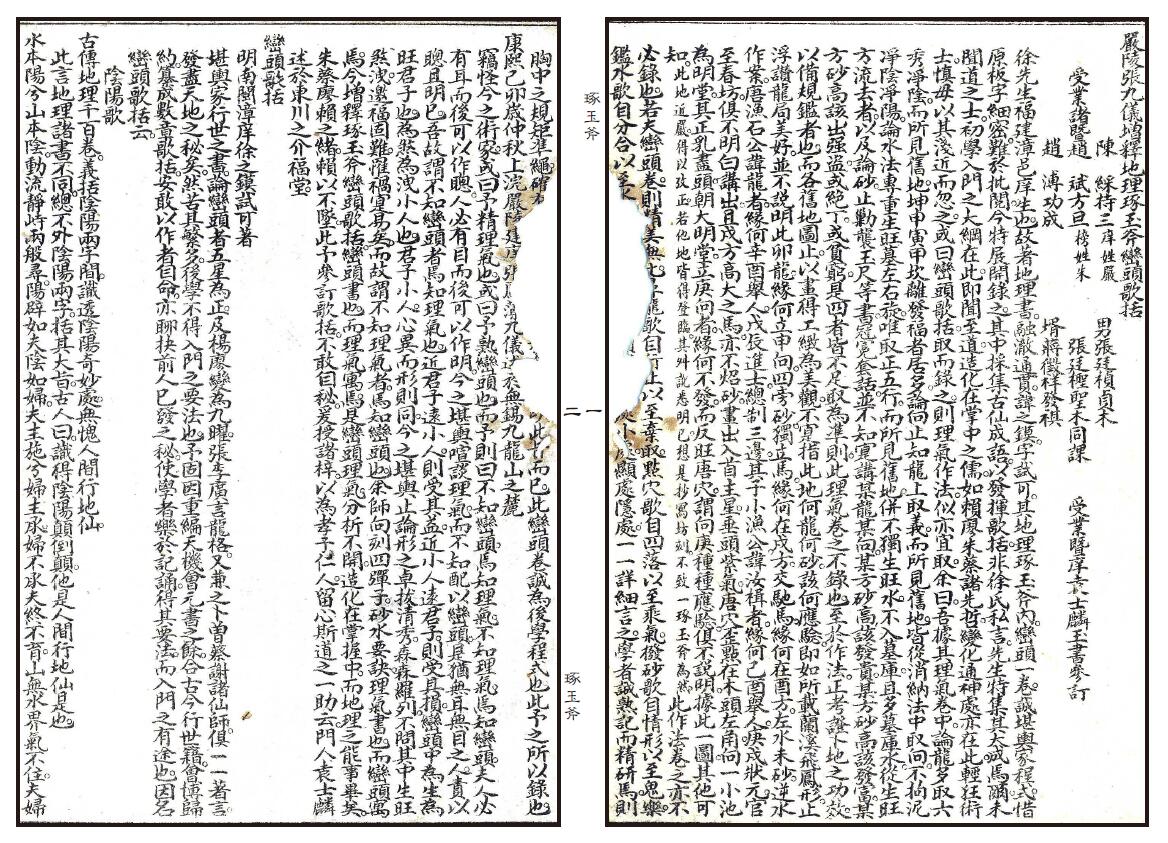 嚴陵張九儀增釋地理琢玉斧巒頭歌括
陳 綵持三庠姓嚴 男張廷楨貞木
受業諸暨趙 斌方旦榜姓朱 張廷極聖木同課 受業暨庠袁士麟玉書參訂
趙 溥功成 壻蔣徵祥發祺
徐先生福建漳邑庠生也故著地理書融澈通貫諱之鏌字試可其地理琢玉斧內巒頭一卷誠堪輿家程式惜
原板字細密難於批閱今特展開錄之其中採集古仙成語以發揮歌括非徐氏私言先生特集其大成焉爾未
聞道之士初學入門之大綱在此即聞至道造化在掌中之儒如賴廖朱蔡諸先哲變化通神處亦在此輕狂術
士慎毋以其淺近而忽之或曰巒頭歌括取而錄之則理氣作法似亦宜取余曰吾據其理氣卷中論龍多取六
秀淨陰而所見舊地坤申寅甲坎離發福者居多論向止知龍上取義而所見舊地皆從消納法中取向不拘泥
淨陰淨陽論水法專重生旺墓左右旋唯取正五行而所見舊地併不獨生旺水不入墓庫且多墓庫水從生旺
方流去者以及論砂止勦襲玉尺等書冠冕套話並不知實講某龍某向某方砂高該發貴某方砂高該發富某
方砂高該出強盜或絕丁或貧窮是四者皆不足取為準則此理氣卷之不錄也至於作法正考證卜地之功效
以備規鑑者也而各舊地圖止以畫得工緻為美觀不實指此地何龍何砂該何應驗即如所載蘭溪飛鳳形止
浮讚龍局美好並不說明此卯龍緣何立申向四旁砂獨立馬緣何在戌方交馳馬緣何在酉方左水未砂逆水
作案唐漁石公諱龍者緣何辛酉舉人戊辰進士總制三邊其子小漁公諱汝楫者緣何己酉舉人庚戌狀元官
至春坊俱不明白講出且戌方高大之馬亦不烙砂畫出入首主星垂頭紫氣唐穴歪點在木頭左角向一小池
為明堂其正乳盡頭朝大明堂立庚向者緣何不發而反旺唐穴謂向庚種種應驗俱不說明據此一圖其他可
知此地近嚴得以改正若他地皆得登臨其舛說卷明已想是抄寫坊刻不致一琢玉斧為然此作法卷之亦不
必錄也若夫巒頭卷則精美無比 龍歌目行止以至棄取點穴歌目四落以至乘氣撥砂歌目情形以至鬼樂
鑑水歌目分合以至 從小 顯處隱處一一詳細言之學者誠熟記而精研焉則
琢玉斧
一
二
琢玉斧
胸中之規矩準繩確有 此而已此巒頭卷誠為後學程式也此予之所以錄也
康熙己卯歲仲秋上浣嚴陵 張 九儀 無錫九龍山之麓
竊怪今之術家或曰予精理氣也或曰予熟巒頭也而予則曰不知巒頭焉知理氣不知理氣焉知巒頭夫人必
有耳而後可以作聰人必有目而後可以作明今之堪輿喑談理氣而不知配以巒頭是猶無耳無目之人責以
聰且明已吾故謂不知巒頭者焉知理氣也近君子遠小人則受其益近小人遠君子則受其損巒頭中為生為
旺君子也為煞為洩小人也君子小人心異而形則同今之堪輿止論形之卓拔清秀森森羅列不問其中生旺
煞洩邀福固難罹禍實易矣而故謂不知理氣者焉知巒頭也余師向刻四彈子砂水要訣理氣書也而巒頭寓
焉今增釋琢玉斧巒頭歌括巒頭書也而理氣寓焉是巒頭理氣分析不開造化在掌握中而地理之能事畢矣
朱蔡廖賴之緒賴以不墜此予參訂歌括不敢自秘爰授諸梓以為孝子仁人留心斯道之一助云門人袁士麟
述於東川之介福堂
巒頭歌括
明南閩漳庠徐之鏌試可著
堪輿家行世之書論巒頭者五星為正及楊廖變為九曜張子廣言龍格又兼之卜曾蔡謝諸仙師俱一一著言
發盡天地之秘矣然苦其繁多後學不得入門之要法也予固因重編天機會元書之餘合古今行世籍會博歸
約纂成數章歌括安敢以作者自命亦聊抉前人已發之秘使學者樂於記誦得其要法而入門之有途也因名
巒頭歌括云
陰陽歌
古傳地理千百卷義括陰陽兩字間識透陰陽奇妙處無愧人間行地仙
此言地理諸書不同總不外陰陽兩字括其大旨古人曰識得陰陽顛倒顛他是人間行地仙是也
水本陽兮山本陰動流靜峙兩般尋陽辟如夫陰如婦夫主施兮婦主承婦不承夫終不育山無水界氣不住夫婦